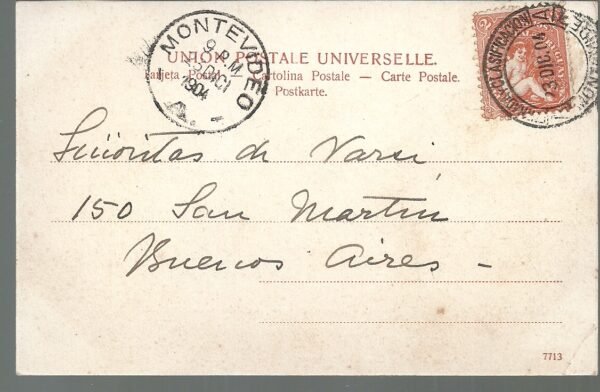 MONTEVIDEO
9 P.M.
DICI
1904
A.
UNION POSTALE UNIVERSELLE.
Tarjeta Postal — Cartolina Postale — Carte Postale.
Postkarte.
2
CLASIFICACION
Señoritas de Varsi
150 San Martin
Buenos Aires –
7713